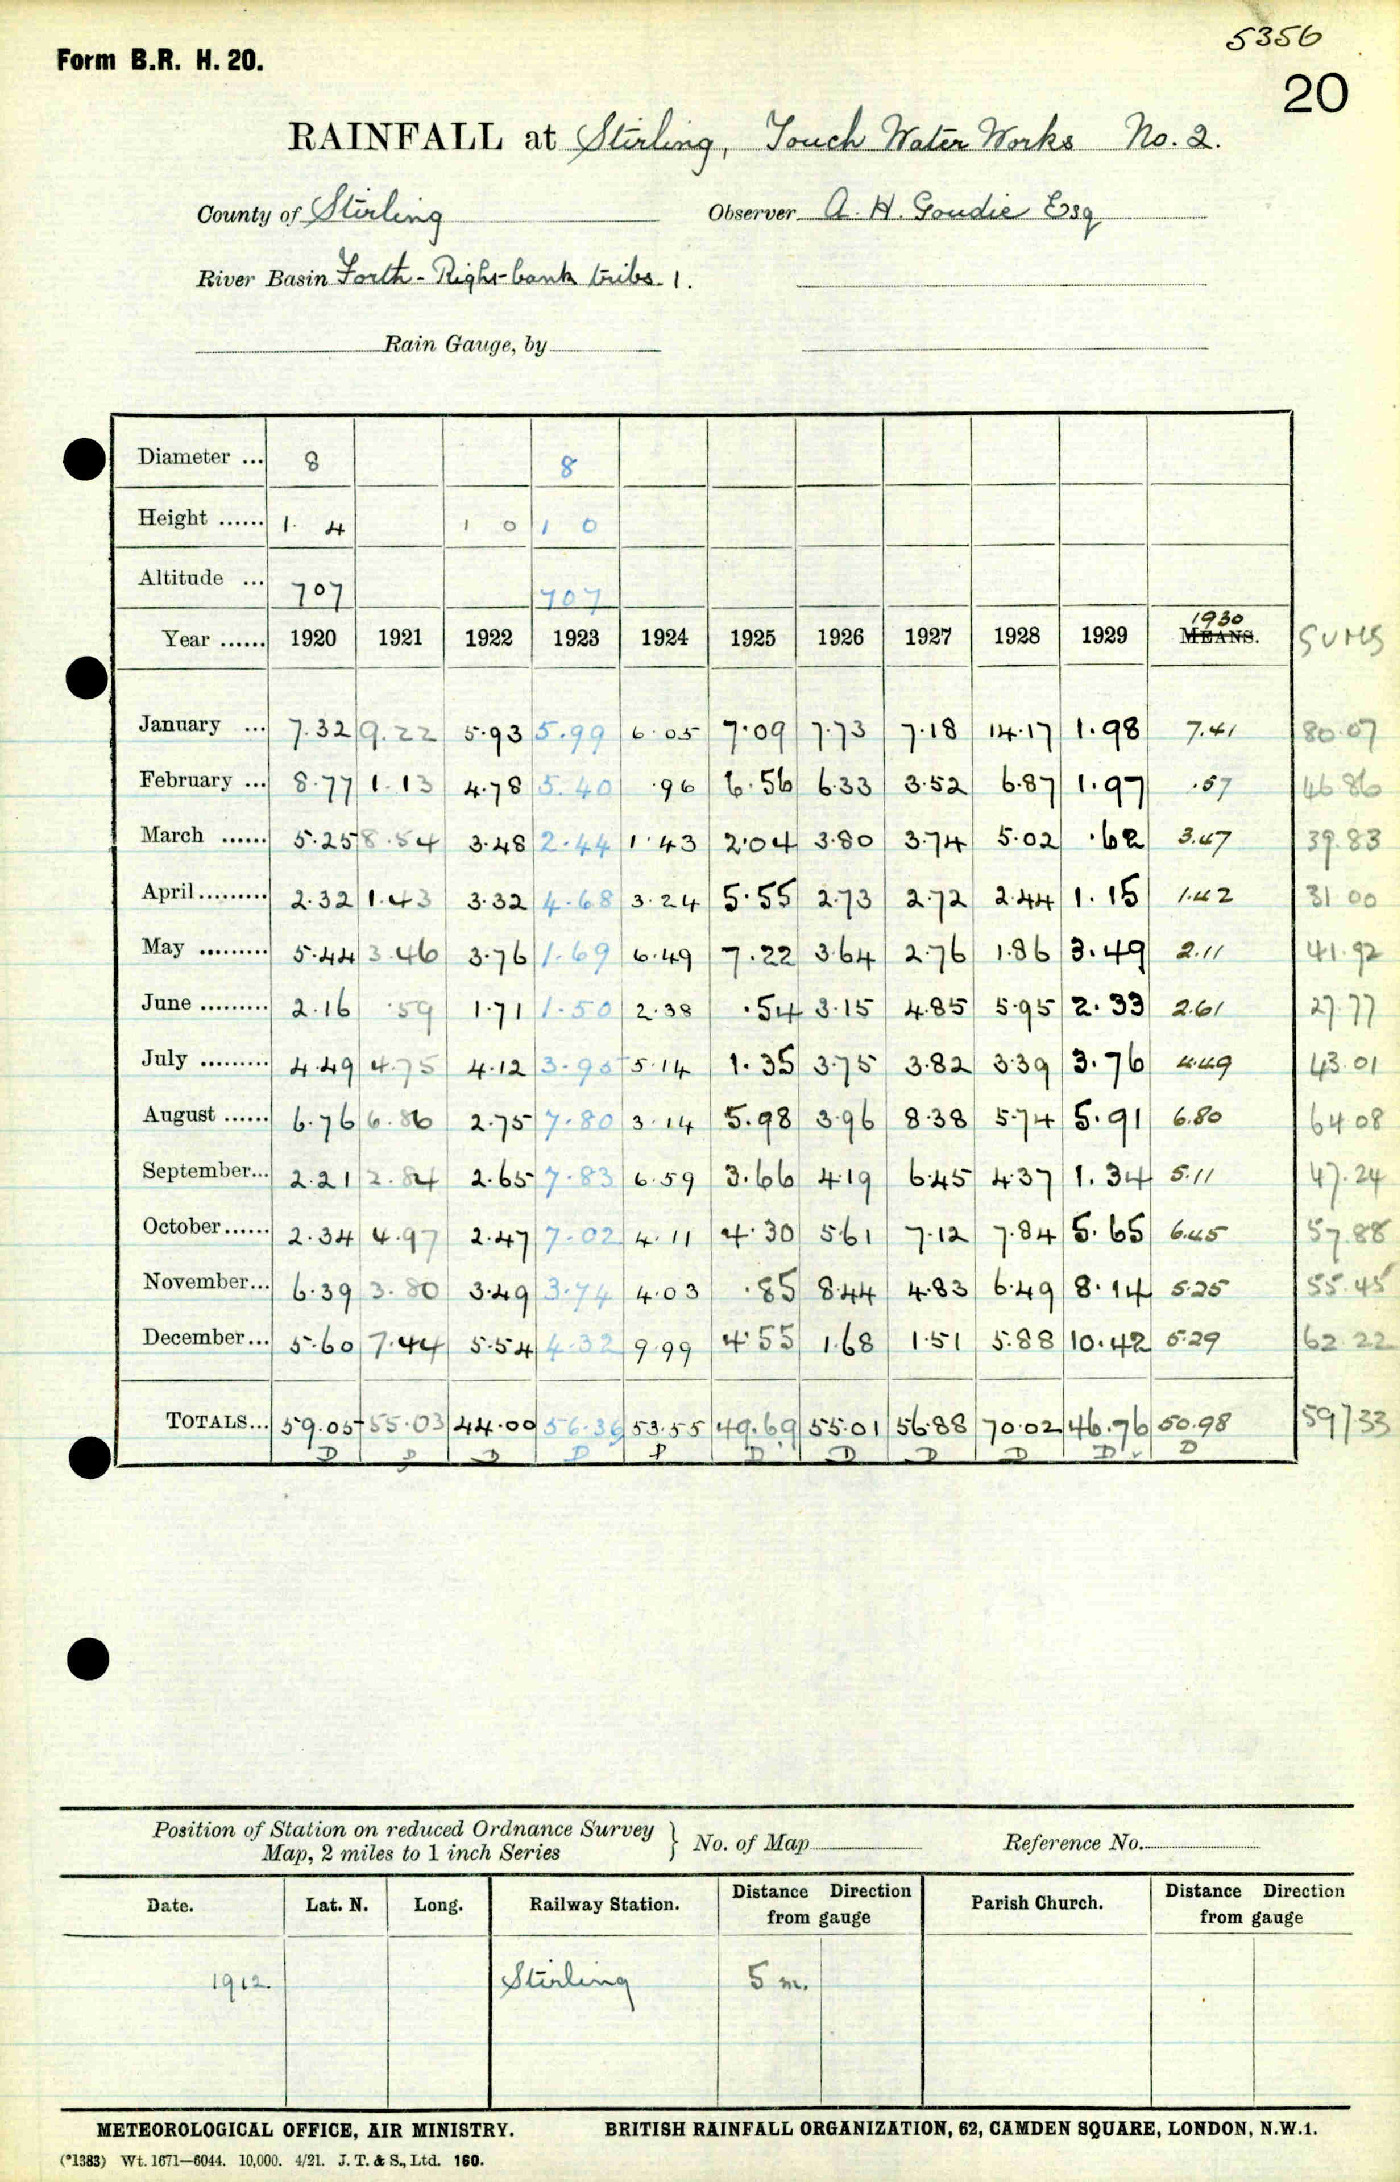 5356
Form B.R. H. 20.
20
RAINFALL at Stirling, Touch Water Works No. 2.
County of Stirling Observer A. H. Goudie Esq
River Basin Forth - Right-bank tribs. 1.
Rain Gauge, by
Diameter ... 8 8
Height ...... 1. 4 1 0 1 0
Altitude ... 707 707
1930
Year ...... 1920 1921 1922 1923 1924 1925 1926 1927 1928 1929 MEANS. SUMS
January ... 7.32 9.22 5.93 5.99 6.05 7.09 7.73 7.18 14.17 1.98 7.41 80.07
February ... 8.77 1.13 4.78 5.40 .96 6.56 6.33 3.52 6.87 1.97 .57 46.86
March ...... 5.25 8.54 3.48 2.44 1.43 2.04 3.80 3.74 5.02 .62 3.47 39.83
April ......... 2.32 1.43 3.32 4.68 3.24 5.55 2.73 2.72 2.44 1.15 1.42 31.00
May ......... 5.44 3.46 3.76 1.69 6.49 7.22 3.64 2.76 1.86 3.49 2.11 41.92
June ......... 2.16 .59 1.71 1.50 2.38 .54 3.15 4.85 5.95 2.33 2.61 27.77
July ......... 4.49 4.75 4.12 3.95 5.14 1.35 3.75 3.82 3.39 3.76 4.49 43.01
August ...... 6.76 6.86 2.75 7.80 3.14 5.98 3.96 8.38 5.74 5.91 6.80 64.08
September... 2.21 2.84 2.65 7.83 6.59 3.66 4.19 6.45 4.37 1.34 5.11 47.24
October...... 2.34 4.97 2.47 7.02 4.11 4.30 5.61 7.12 7.84 5.65 6.45 57.88
November... 6.39 3.80 3.49 3.74 4.03 .85 8.44 4.83 6.49 8.14 5.25 55.45
December... 5.60 7.44 5.54 4.32 9.99 4.55 1.68 1.51 5.88 10.42 5.29 62.22
TOTALS... 59.05 55.03 44.00 56.36 53.55 49.69 55.01 56.88 70.02 46.76 50.98 597.33
D D D D D D D D D D D
Position of Station on reduced Ordnance Survey
Map, 2 miles to 1 inch Series } No. of Map Reference No.
Date. Lat. N. Long. Railway Station. Distance Direction from gauge Parish Church. Distance Direction from gauge
1912. Stirling 5 m.
METEOROLOGICAL OFFICE, AIR MINISTRY. BRITISH RAINFALL ORGANIZATION, 62, CAMDEN SQUARE, LONDON, N.W.1.
(*1383) Wt. 1671—6044. 10,000. 4/21. J. T. & S., Ltd. 160.